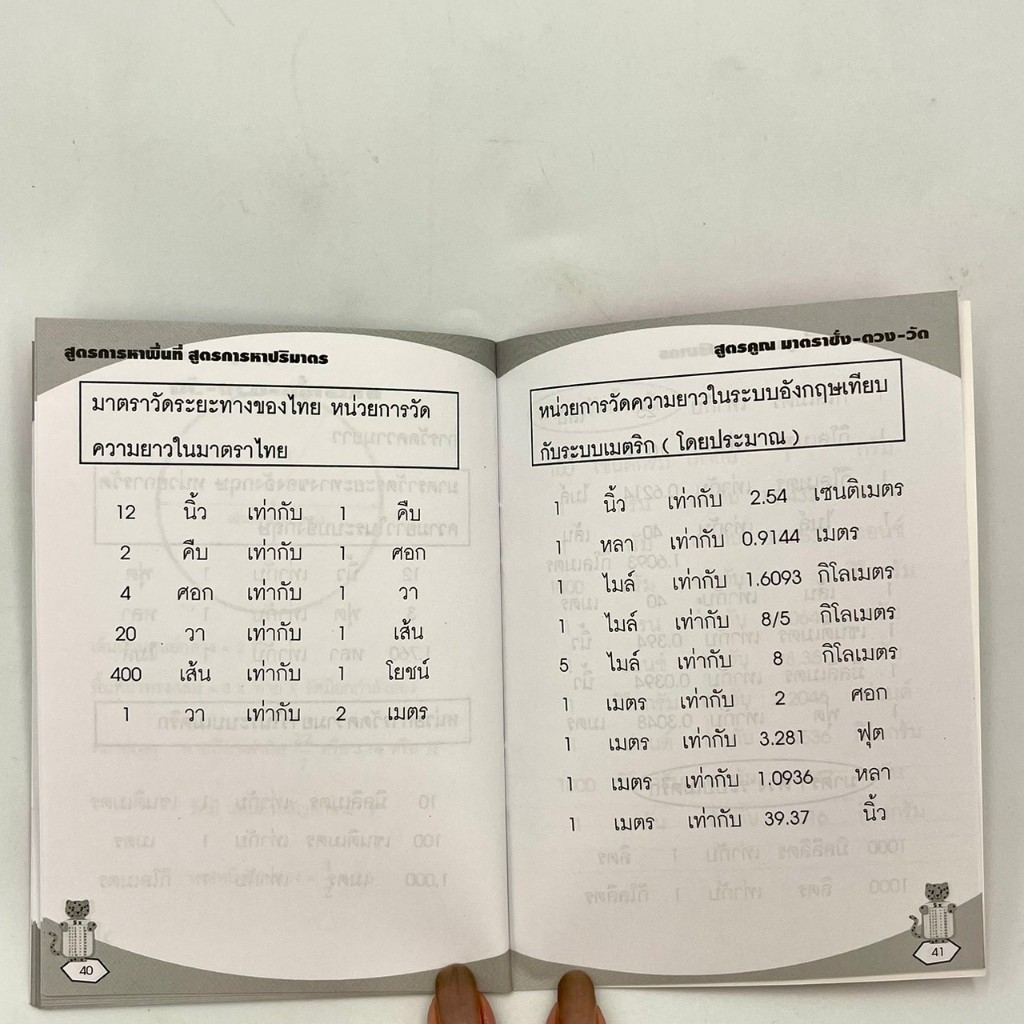 สูตรการหาพื้นที่ สูตรการหาปริมาตร
มาตราวัดระยะทางของไทย หน่วยการวัด
ความยาวในมาตราไทย
12 นิ้ว เท่ากับ 1 คืบ
2 คืบ เท่ากับ 1 ศอก
4 ศอก เท่ากับ 1 วา
20 วา เท่ากับ 1 เส้น
400 เส้น เท่ากับ 1 โยชน์
1 วา เท่ากับ 2 เมตร
40
สูตรคูณ มาตราชั่ง-ตวง-วัด
หน่วยการวัดความยาวในระบบอังกฤษเทียบ
กับระบบเมตริก ( โดยประมาณ )
1 นิ้ว เท่ากับ 2.54 เซนติเมตร
1 หลา เท่ากับ 0.9144 เมตร
1 ไมล์ เท่ากับ 1.6093 กิโลเมตร
1 ไมล์ เท่ากับ 8/5 กิโลเมตร
5 ไมล์ เท่ากับ 8 กิโลเมตร
1 เมตร เท่ากับ 2 ศอก
1 เมตร เท่ากับ 3.281 ฟุต
1 เมตร เท่ากับ 1.0936 หลา
1 เมตร เท่ากับ 39.37 นิ้ว
41